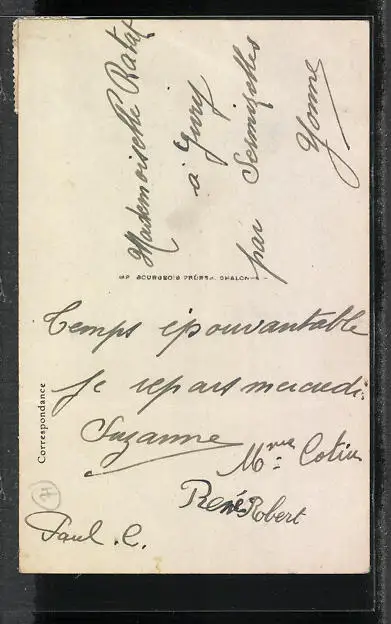 Mademoiselle Ratat
à Givry
par Sermizelles
Yonne
IMP. BOURGEOIS FRÈRES, CHALON-S-
Correspondance
Temps épouvantable
Je repars mercredi.
Suzanne
Mme Cotin
René Robert
Paul. C.
71